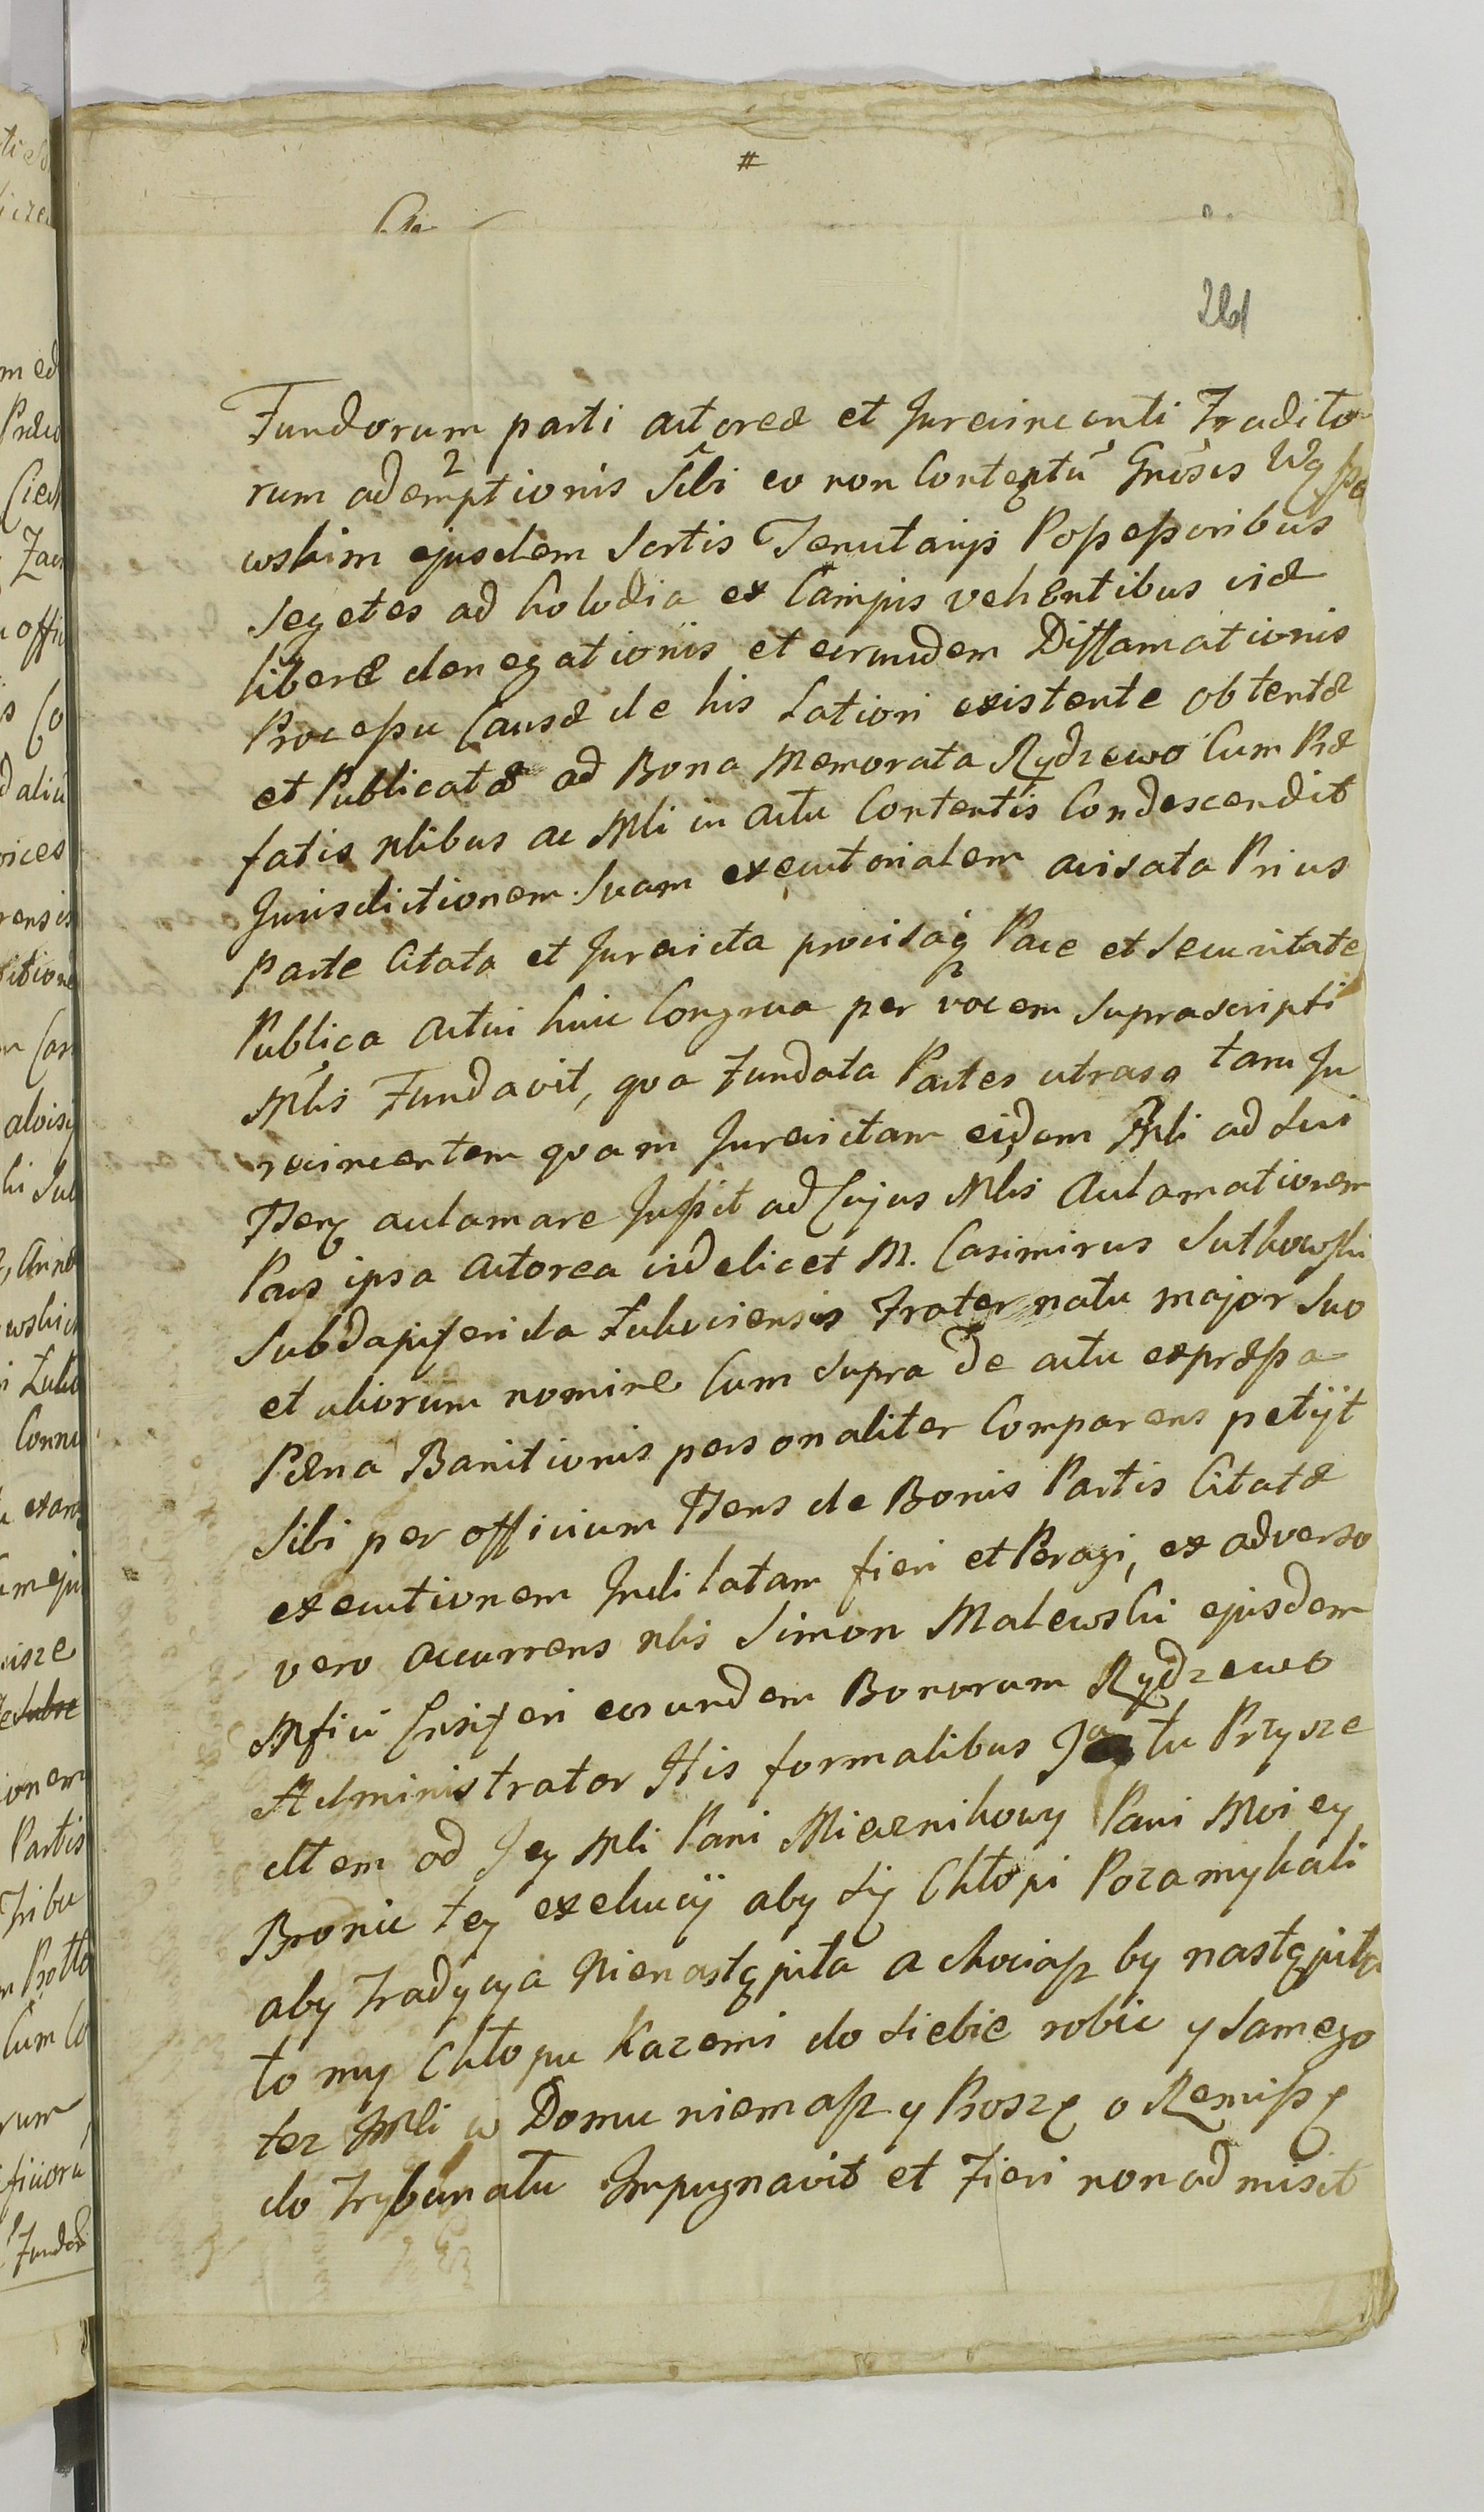 #
261
Fundorum parti actoreæ et Jurevincenti Tradito
rum ademptionis sibi eo non Contentũ Gnosis Wąsso
wskim ejusdem Sortis Tenutarijs Possessoribus
Segetes ad holodia ex Campis vehentibus viæ
liberæ denegationis et eorundem Diffamationis
Processu Causæ de his Lation existente obtentæ
et Publicatæ ad Bona Memorata Rydzewo Cum Præ
fatis Nlibus ac Mli in actu Contentis Condescendit
Jurisdictionem Suam executorialem avisata Prius
parte Citata et Jurevicta provisaq Pace et Securitate
Publica actui huic Congrua per vocem Suprascripti
Mlis Fundavit, qva Fundata Partes utrasq tam Ju
revincentem qvam Jurevictam eidem Mli ad Sui
Pterq aclamare Jussit ad Cujus Mlis Aclamationem
Pars ipsa Actorea videlicet M. Casimirus Sutkowski
Subdapiferida Lukoviensis Frater natu major Suo
et aliorum nomine Cum Supra de actu expressa
Pæna Banitionis personaliter Comparens petijt
Sibi per officium Ptens de Bonis Partis Citatæ
executionem Judilatam fieri et Peragi, ex adverso
vero accurrens Nlis Simon Malewski ejusdem
Mfici Ensiferi eorundem Bonorum Rydzewo
Administrator His formalibus Ja tu Przysze
dłem od Jey Mli Pani Miecznikowy Pani Moiey
Bronic tey exekucij aby Się Chłopi Pozamykali
aby Tradycya Nienastąpiła a chociasz by nastąpiła
to my Chłopu Kazemi do Siebie robic y Samego
tez Mli w Domu niemasz y Proszę o Remissę
do Trybunatu Impugnavit et Fieri non admisit